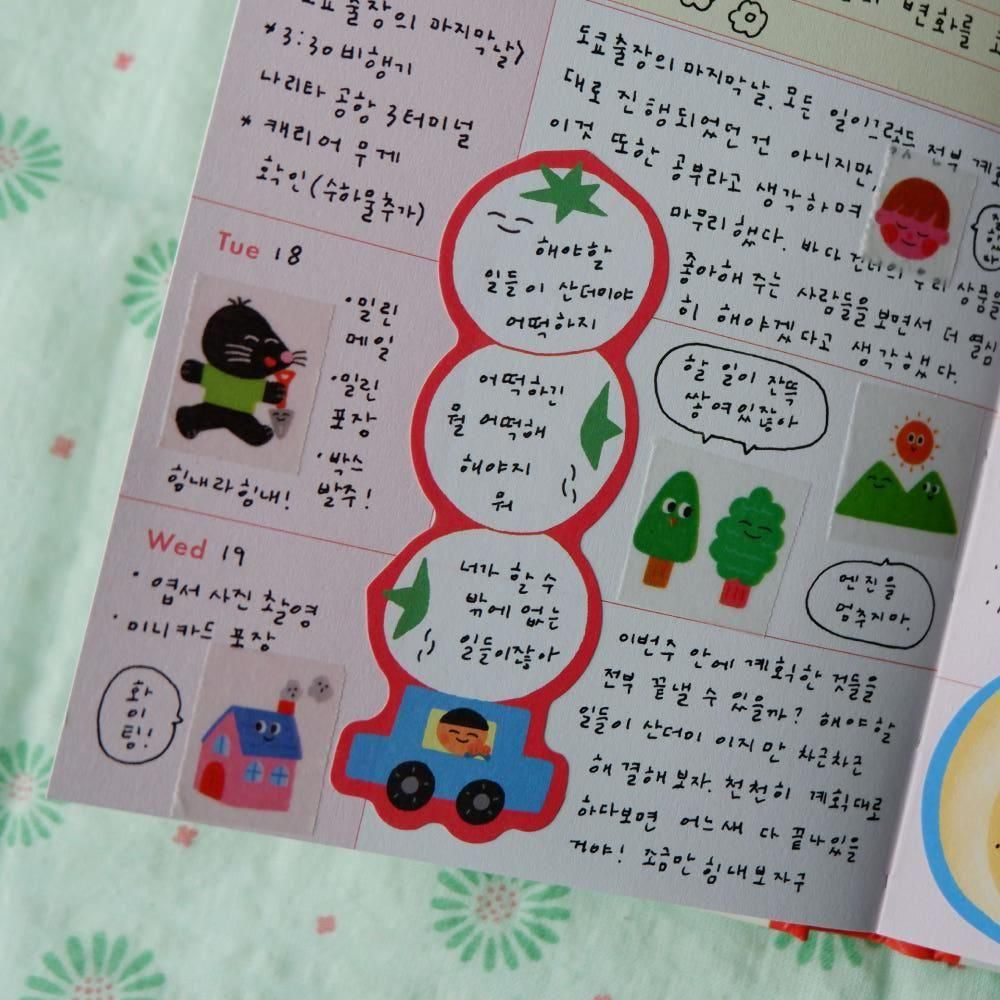 출장의 마지막날>
*3:30 비행기
나리타 공항 3터미널
* 캐리어 무게
확인 (수하물추가)
Tue 18
·밀린
메일
·밀린
포장
·박스
발주!
힘내라 힘내!
Wed 19
· 엽서 사진 촬영
· 미니카드 포장
화
이
팅!
해야할
일들이 산더미야
어떡하지
어떡하긴
뭘 어떡해
해야지
뭐
너가 할 수
밖에 없는
일들이잖아
변화를
도쿄출장의 마지막날. 모든 일이 전부 계
대로 진행되었던 건 아니지만,
이것 또한 공부라고 생각하며
마무리했다. 바다 건너의 우리 상품을
좋아해 주는 사람들을 보면서 더 열심
히 해야겠다고 생각했다.
할 일이 잔뜩
쌓여있잖아
엔진을
멈추지마.
이번주 안에 계획한 것들을
전부 끝낼 수 있을까? 해야할
일들이 산더미 이지만 차근차근
해결해보자. 천천히 계획대로
하다보면 어느새 다 끝나있을
거야! 조금만 힘내보자구